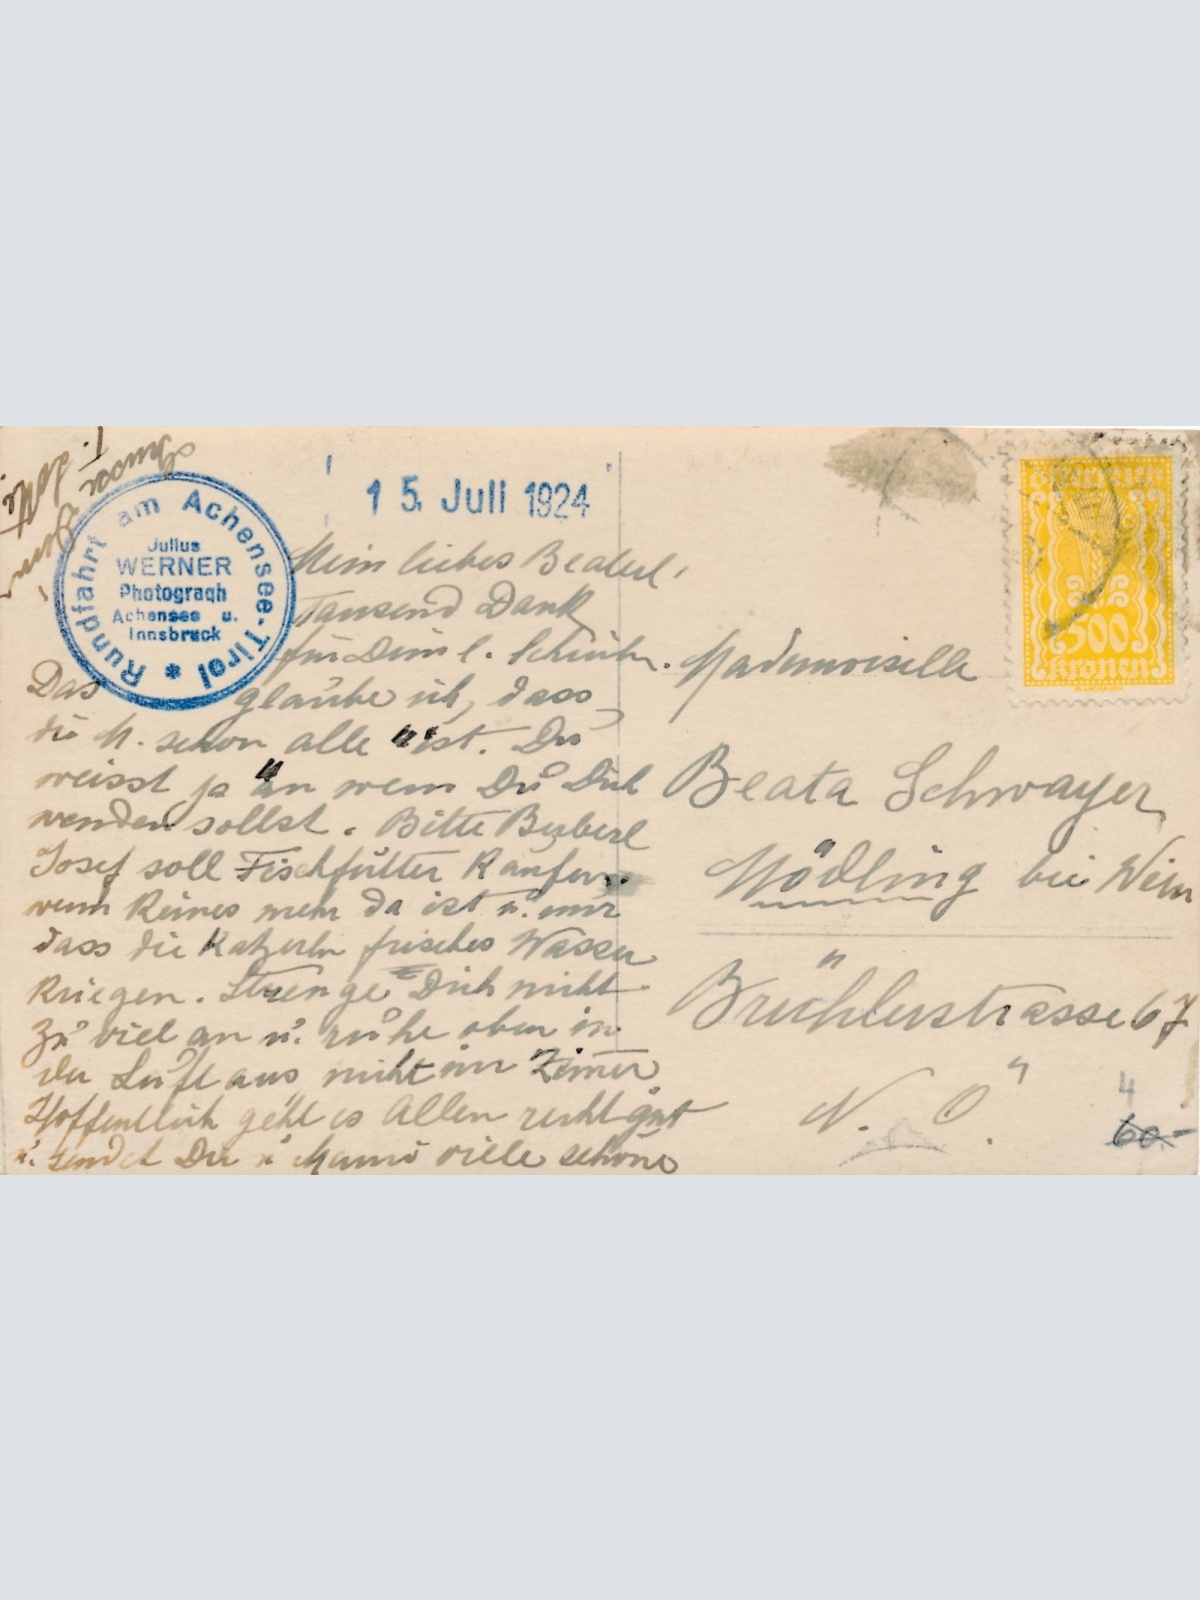 15. Juli 1924
Rundfahrt am Achensee-Tirol *
Julius
WERNER
Photograqh
Achensee u.
Innsbruck
Mein liebes Beaterl,
Tausend Dank
für Dein l. Schreiben.
Das glaube ich, dass
die M. schon alle ist. Du
weisst ja an wem Du Dich
wenden sollst. Bitte
Josef soll Fischfutter kaufen
wenn keines mehr da ist u. nur
dass die Katzerln frisches Wasser
kriegen. Strenge Dich nicht
zu viel an u. ruhe oben in
der Luft aus nicht im Zimmer
Hoffentlich geht es Allen recht gut
u. sendet Dir u Mami viele schöne
Mademoiselle
Beata Schwayer
Mödling bei Wien
Brühlerstrasse 67
N. Ö.
4
60-
Österreich
500
Kronen